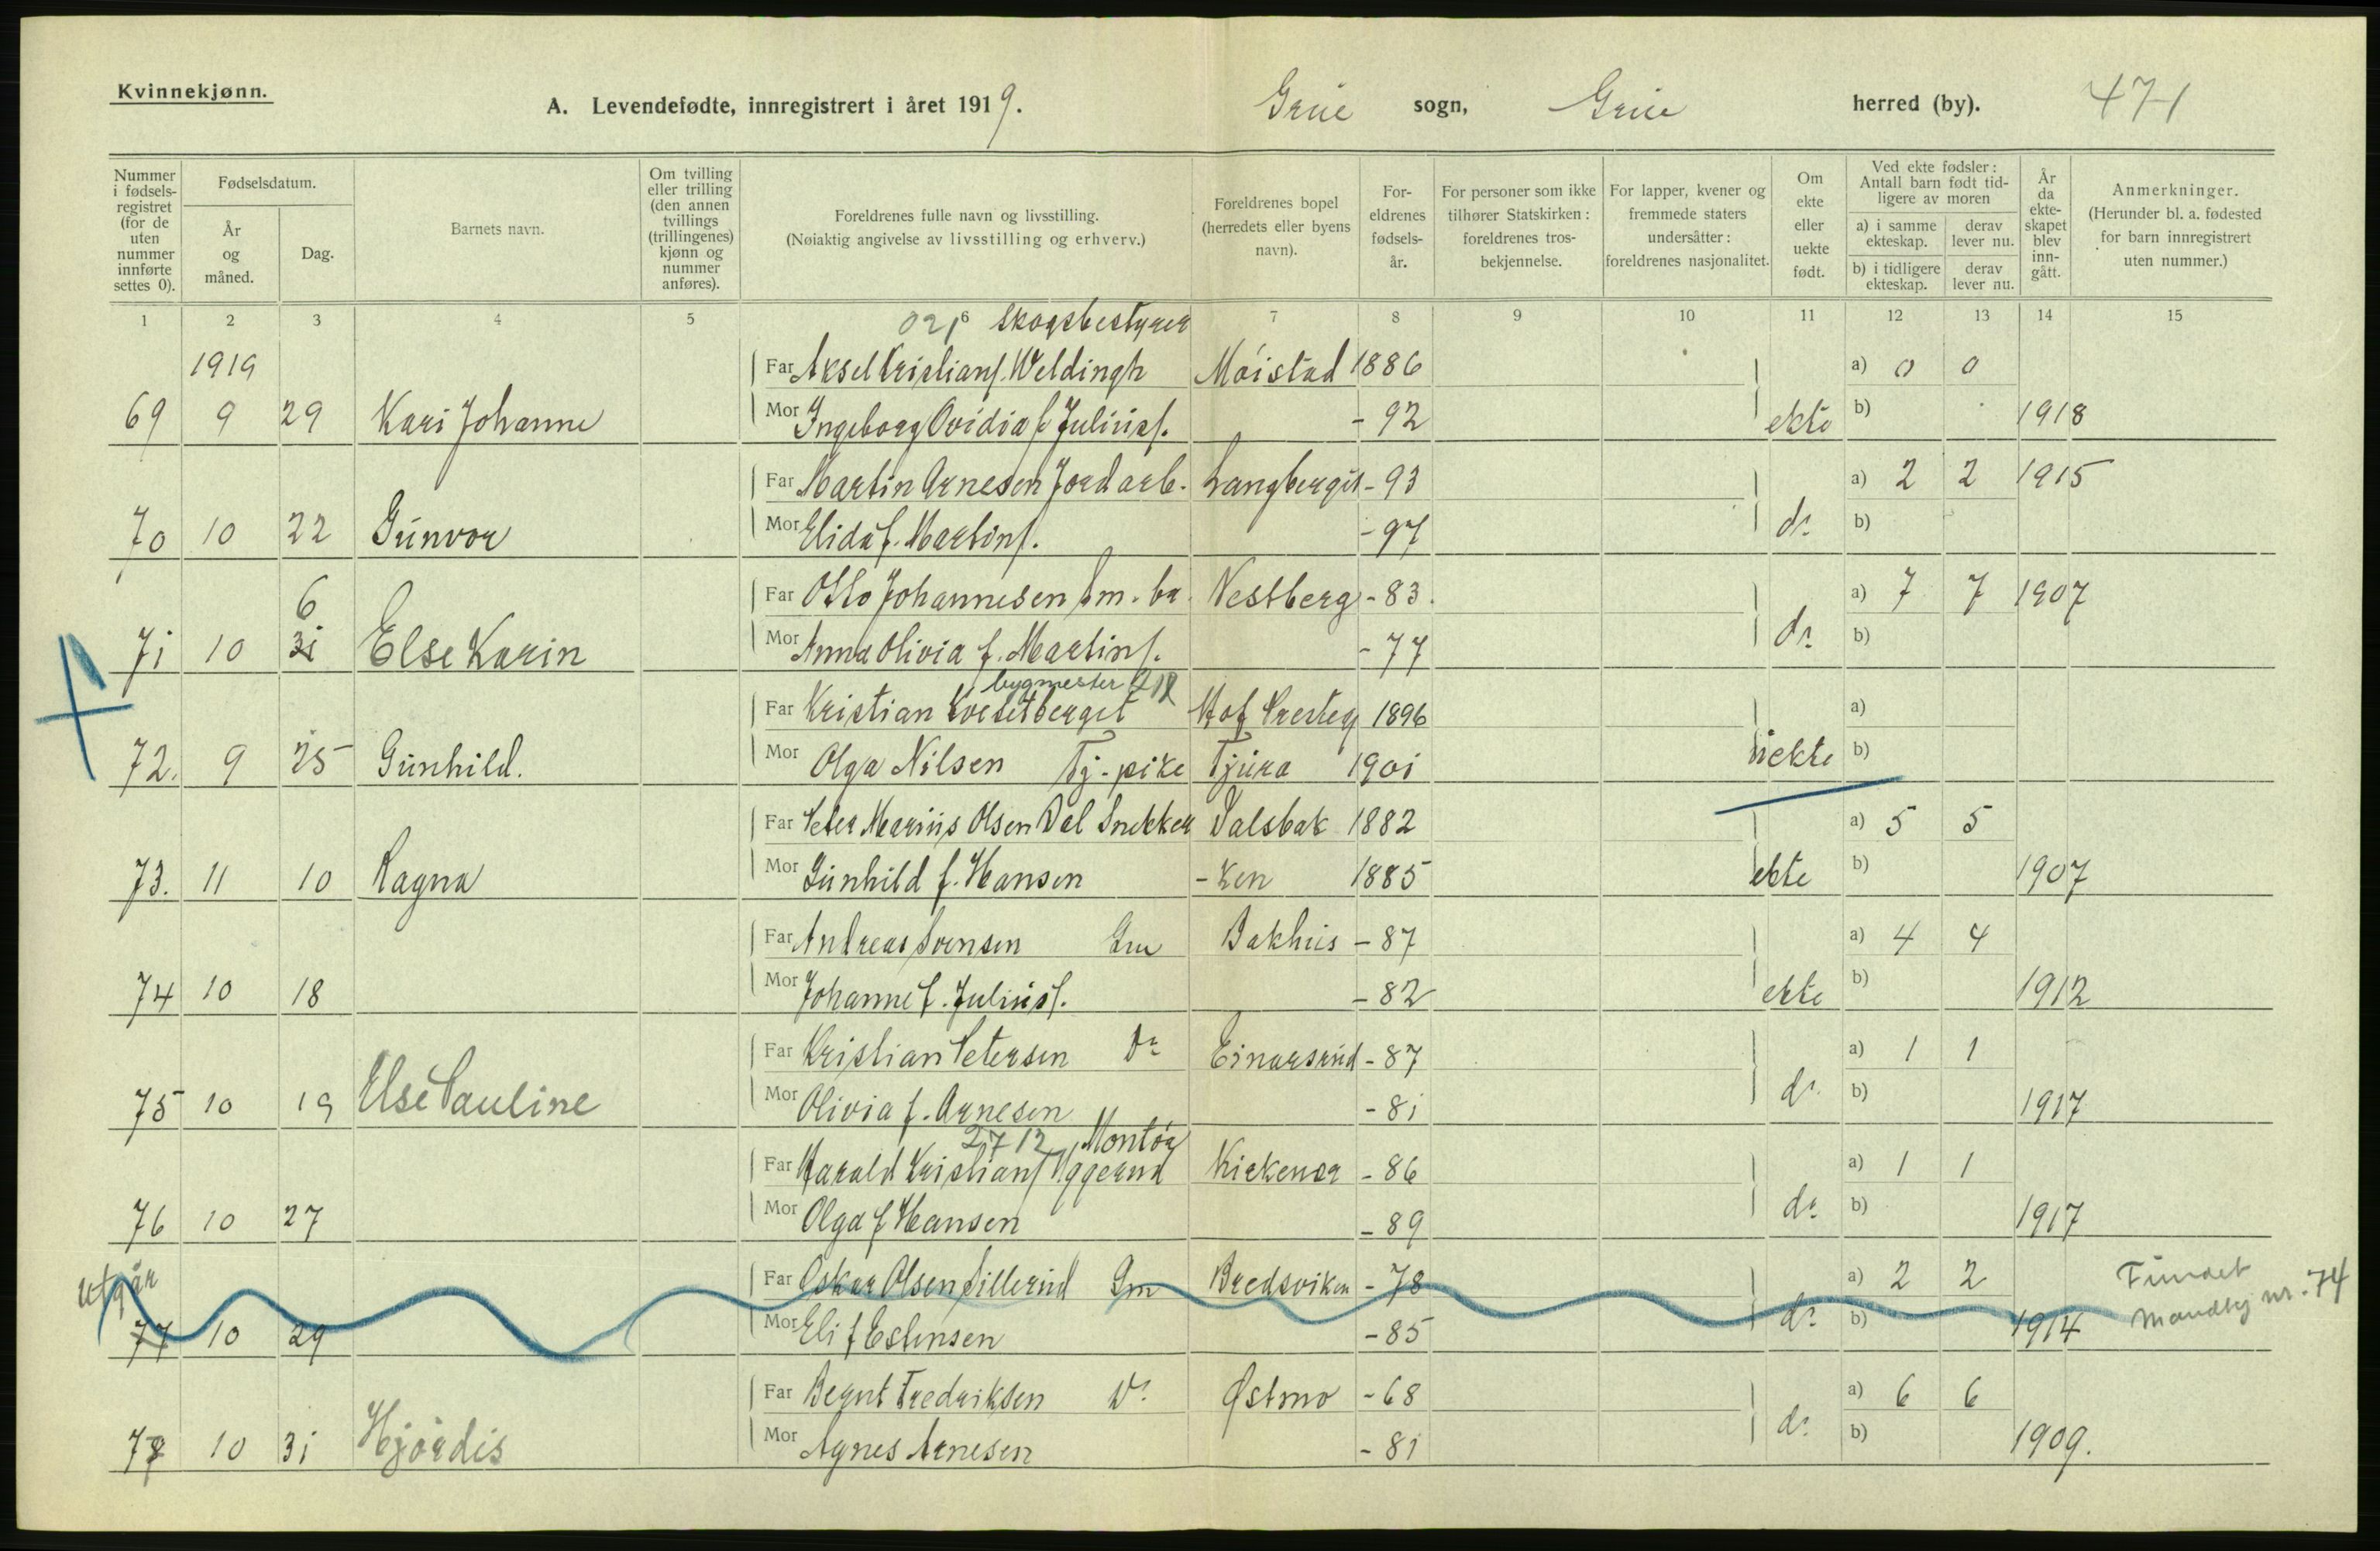 Kvinnekjønn.
A. Levendefødte, innregistrert i året 1919.
Grue sogn, Grue herred (by). 471
Nummer i fødsels-registret (for de uten nummer innførte settes 0).
Fødselsdatum.
År og måned.
Dag.
Barnets navn.
Om tvilling eller trilling (den annen tvillings (trillingenes) kjønn og nummer anføres).
Foreldrenes fulle navn og livsstilling.
(Nøiaktig angivelse av livsstilling og erhverv.)
Foreldrenes bopel (herredets eller byens navn).
For-eldrenes fødsels-år.
For personer som ikke tilhører Statskirken: foreldrenes tros-bekjennelse.
For lapper, kvener og fremmede staters undersåtter: foreldrenes nasjonalitet.
Om ekte eller uekte født.
Ved ekte fødsler: Antall barn født tid-ligere av moren
a) i samme ekteskap.
derav lever nu.
b) i tidligere ekteskap.
derav lever nu.
År da ekte-skapet blev inn-gått.
Anmerkninger.
(Herunder bl. a. fødested for barn innregistrert uten nummer.)
1 2 3 4 5 6 7 8 9 10 11 12 13 14 15
021 Skogsbestyrer
1919 Far Aksel Kristians. Weldingh Moistad 1886 a) 0 0
69 9 29 Kari Johanne Mor Ingeborg Ovidia f. Julius. - 92 ekte b) 1918
Far Martin Arnesen Jordarb. Langberget - 93 a) 2 2 1915
70 10 22 Gunvor Mor Elida f. Martins. - 97 do b)
6 Far Otto Johannesen Nestberg - 83. a) 7 7 1907
71 10 31 Else Karin Mor Anna Olivia f. Martins. - 77 do b)
bygmester
Far Kristian Kvesetberget Hof 1896 a)
72. 9 25 Gunhild. Mor Olga Nilsen Tj-pike Tjura 1901 uekte b)
Far Peter Marius Olsen Dal Snekker Dalsbak 1882 a) 5 5
73. 11 10 Ragna Mor Gunhild f. Hansen -ken 1885 ekte b) 1907
Far Andreas Svensen Gm Bakhus - 87 a) 4 4
74 10 18 Mor Johanne f. Julius. - 82 ekte b) 1912
Far Kristian Petersen Do Einarsrud - 87 a) 1 1
75 10 19 Else Pauline Mor Olivia f. Arnesen - 81 do b) 1917
2712 Montør
Far Harald Kristians Uggerud Kirkenær - 86 a) 1 1
76 10 27 Mor Olga f Hansen - 89 do b) 1917
utgår Far Oskar Olsen Lillerud Gm Bredsviken - 78 a) 2 2 Fundet
77 10 29 Mor Eli f Estensen - 85 do b) 1914 Mandkj nr. 74
Far Bernt Fredriksen Do Østmo - 68 a) 6 6
78 10 31 Hjørdis Mor Agnes Arnesen - 81 do b) 1909.